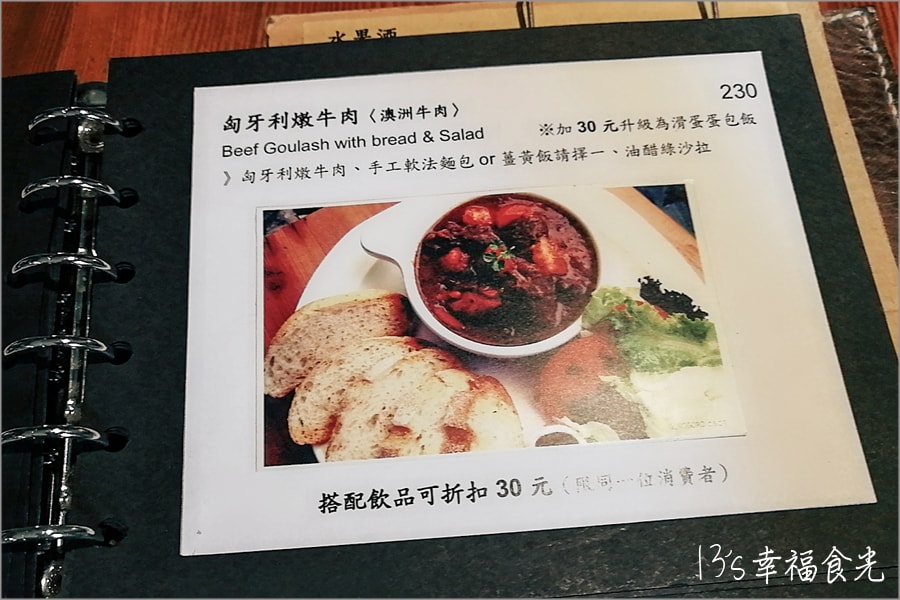 水果酒
匈牙利燉牛肉〈澳洲牛肉〉
230
Beef Goulash with bread & Salad
※加 30 元升級為滑蛋蛋包飯
》匈牙利燉牛肉、手工軟法麵包 or 薑黃飯請擇一、油醋綠沙拉
搭配飲品可折扣 30 元（限同一位消費者）
13's幸福食光